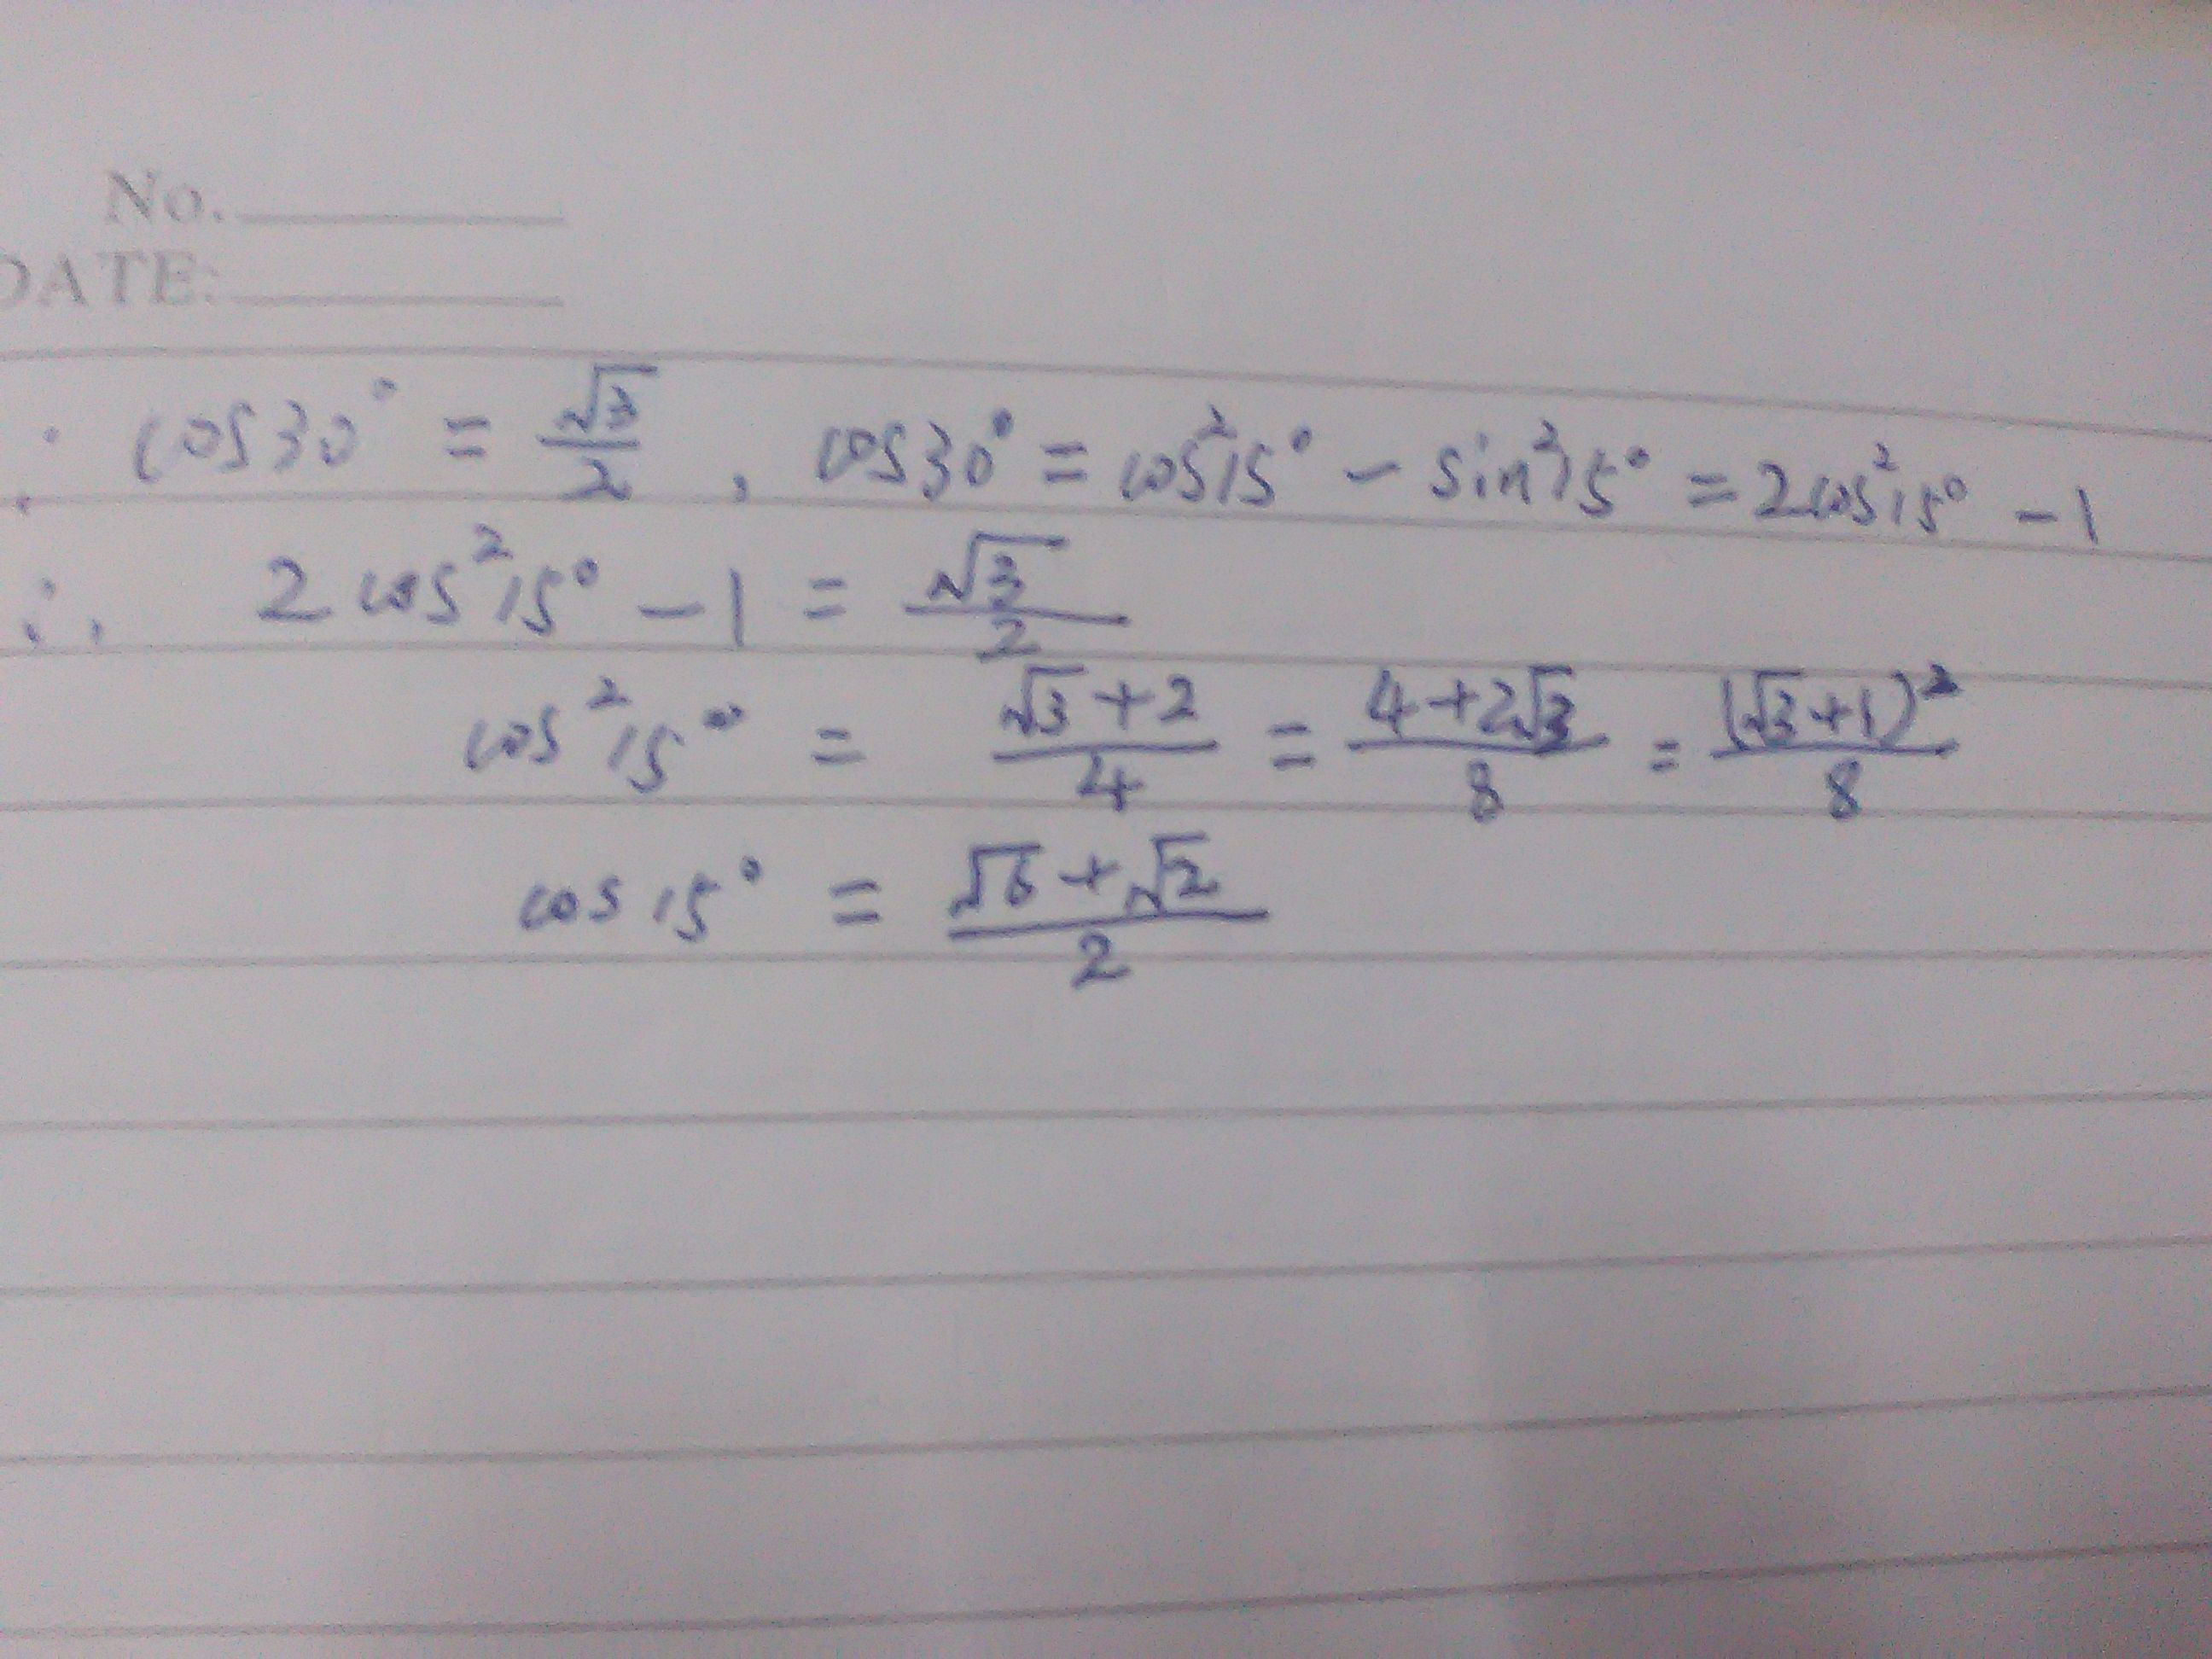 No.
DATE:
∵ cos30° = √3/2, cos30° = cos²15° - sin²15° = 2cos²15° - 1
∴ 2cos²15° - 1 = √3/2
cos²15° = (√3+2)/4 = (4+2√3)/8 = (√3+1)²/8
cos15° = (√6+√2)/2